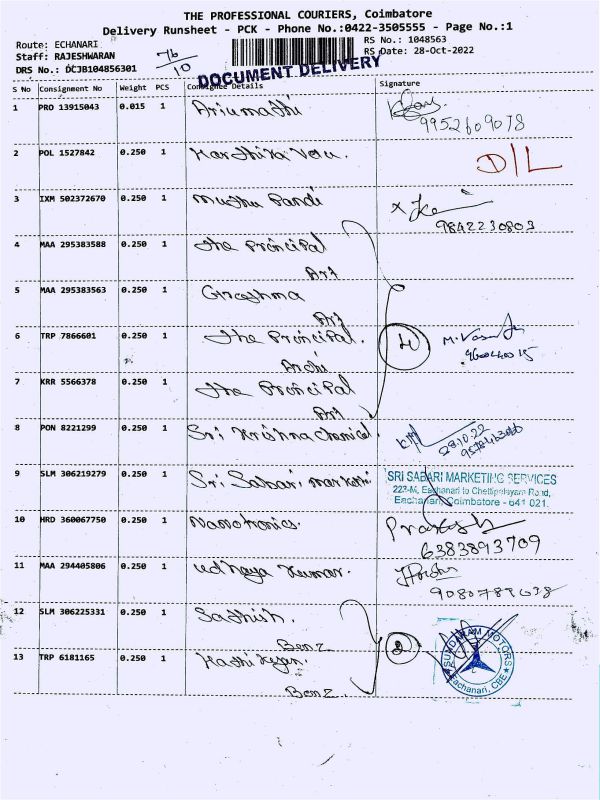 THE PROFESSIONAL COURIERS, Coimbatore
Delivery Runsheet - PCK - Phone No.:0422-3505555 - Page No.:1
Route: ECHANARI
RS No.: 1048563
Staff: RAJESHWARAN
76/10
RS Date: 28-Oct-2022
DRS No.: DCJB104856301
DOCUMENT DELIVERY
S No Consignment No Weight PCS Consignee Details Signature
1 PRO 13915043 0.015 1 Ariumathi
9952609078
2 POL 1527842 0.250 1 Karthika Velu. D/L
3 IXM 502372670 0.250 1 Muthu Pandi
9842230803
4 MAA 295383588 0.250 1 The Principal
Art
5 MAA 295383563 0.250 1 Greeshma
Art
6 TRP 7866601 0.250 1 The Principal. 4
Archi
7 KRR 5566378 0.250 1 The Principal
Art
8 PON 8221299 0.250 1 Sri Krishna Chemical.
28.10.22
9 SLM 306219279 0.250 1 Sri Sabari Marketi
SRI SABARI MARKETING SERVICES
223-M, Eachanari to Chettipalayam Road,
Eachanari, Coimbatore - 641 021.
10 HRD 360067750 0.250 1 Nanotronics. Prakash
6383893709
11 MAA 294405806 0.250 1 Udhaya Kumar.
12 SLM 306225331 0.250 1 Sathish.
Benz
2
SUNDARAM MOTORS
Eachanari, CBE
13 TRP 6181165 0.250 1 Kathikeyan.
Benz.